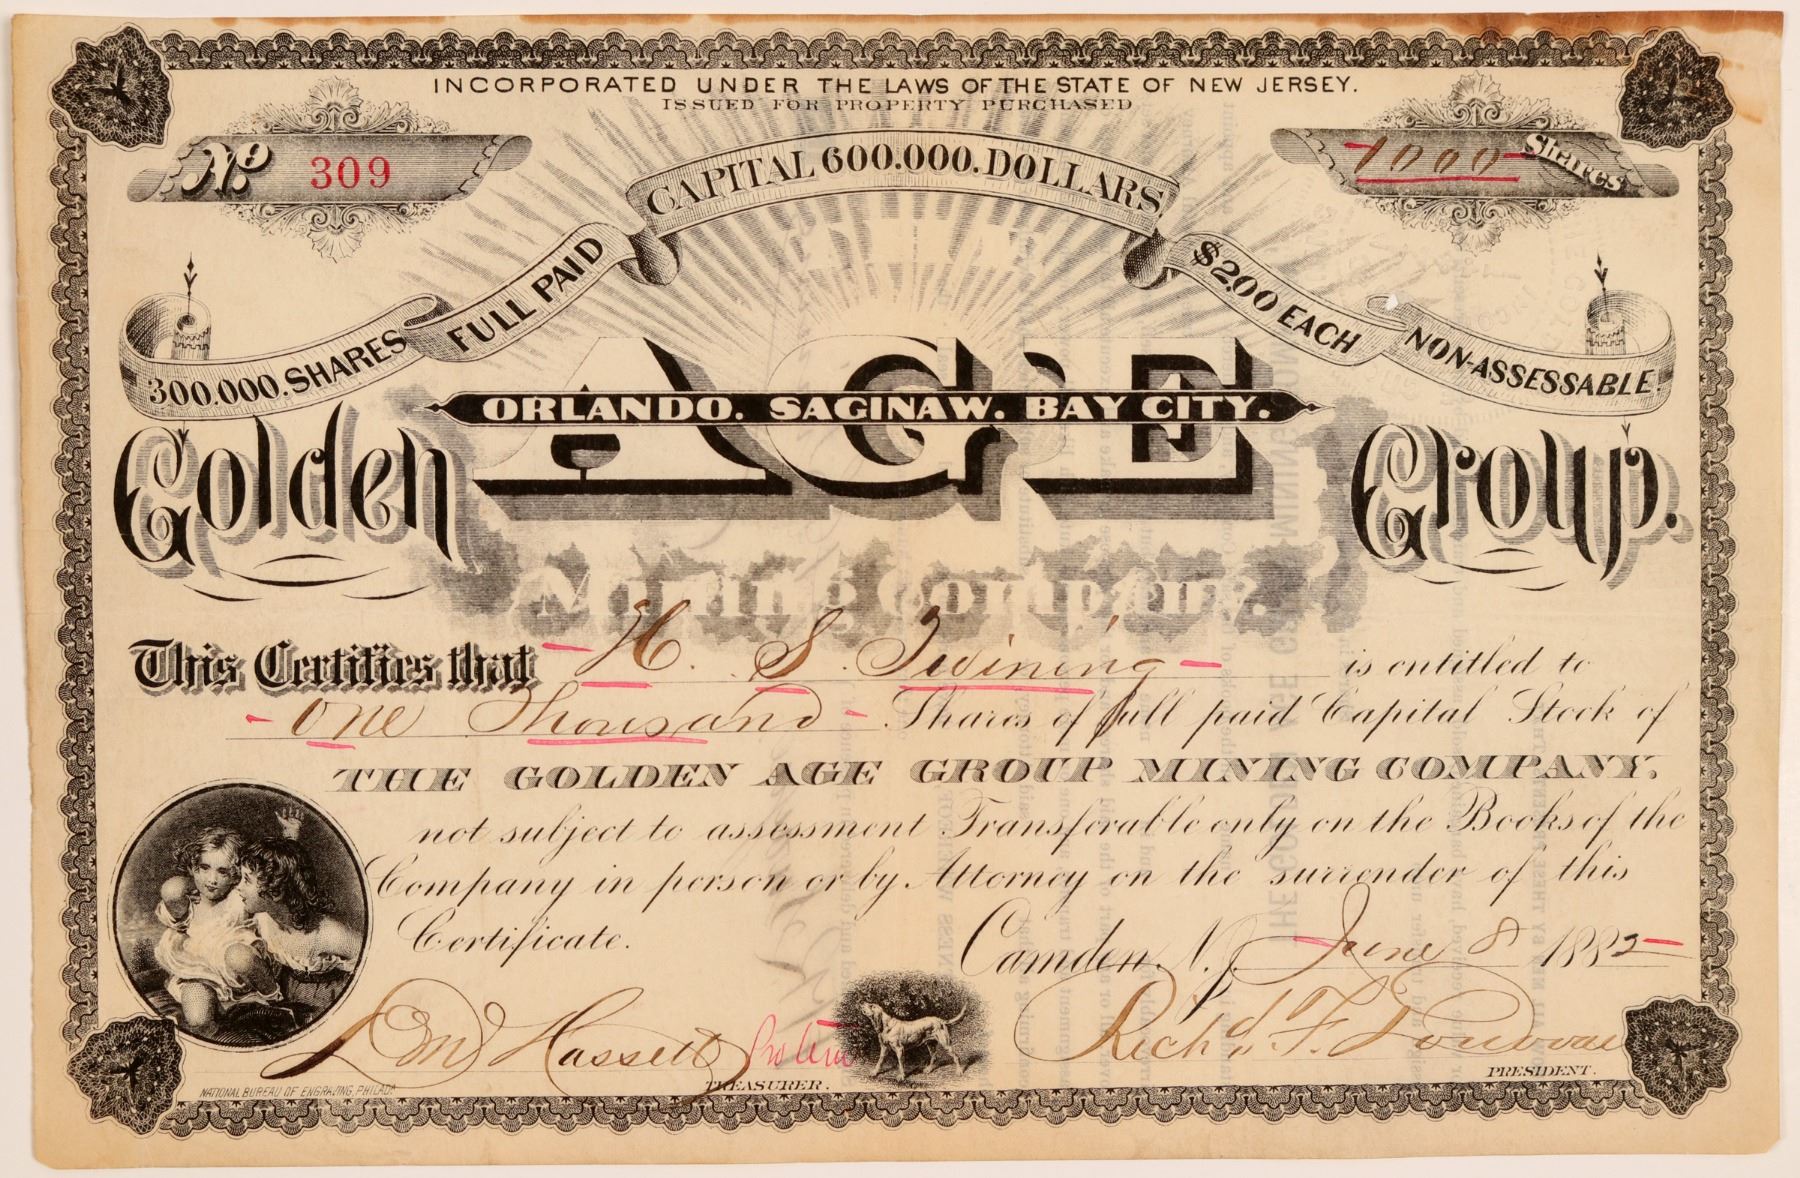 INCORPORATED UNDER THE LAWS OF THE STATE OF NEW JERSEY.
ISSUED FOR PROPERTY PURCHASED
No. 309
1000 Shares
300.000. SHARES FULL PAID CAPITAL 600.000. DOLLARS. $2.00 EACH NON-ASSESSABLE.
ORLANDO. SAGINAW. BAY CITY.
Golden AGE Group.
Mining Company.
This Certifies that H. S. Twining is entitled to
One Thousand Shares of full paid Capital Stock of
THE GOLDEN AGE GROUP MINING COMPANY.
not subject to assessment Transferable only on the Books of the
Company in person or by Attorney on the surrender of this
Certificate.
Camden, N.J. June 8 1882
Edmd Hassett Pro tem
Richd. F. Donovan
TREASURER.
PRESIDENT.
NATIONAL BUREAU OF ENGRAVING, PHILADA.